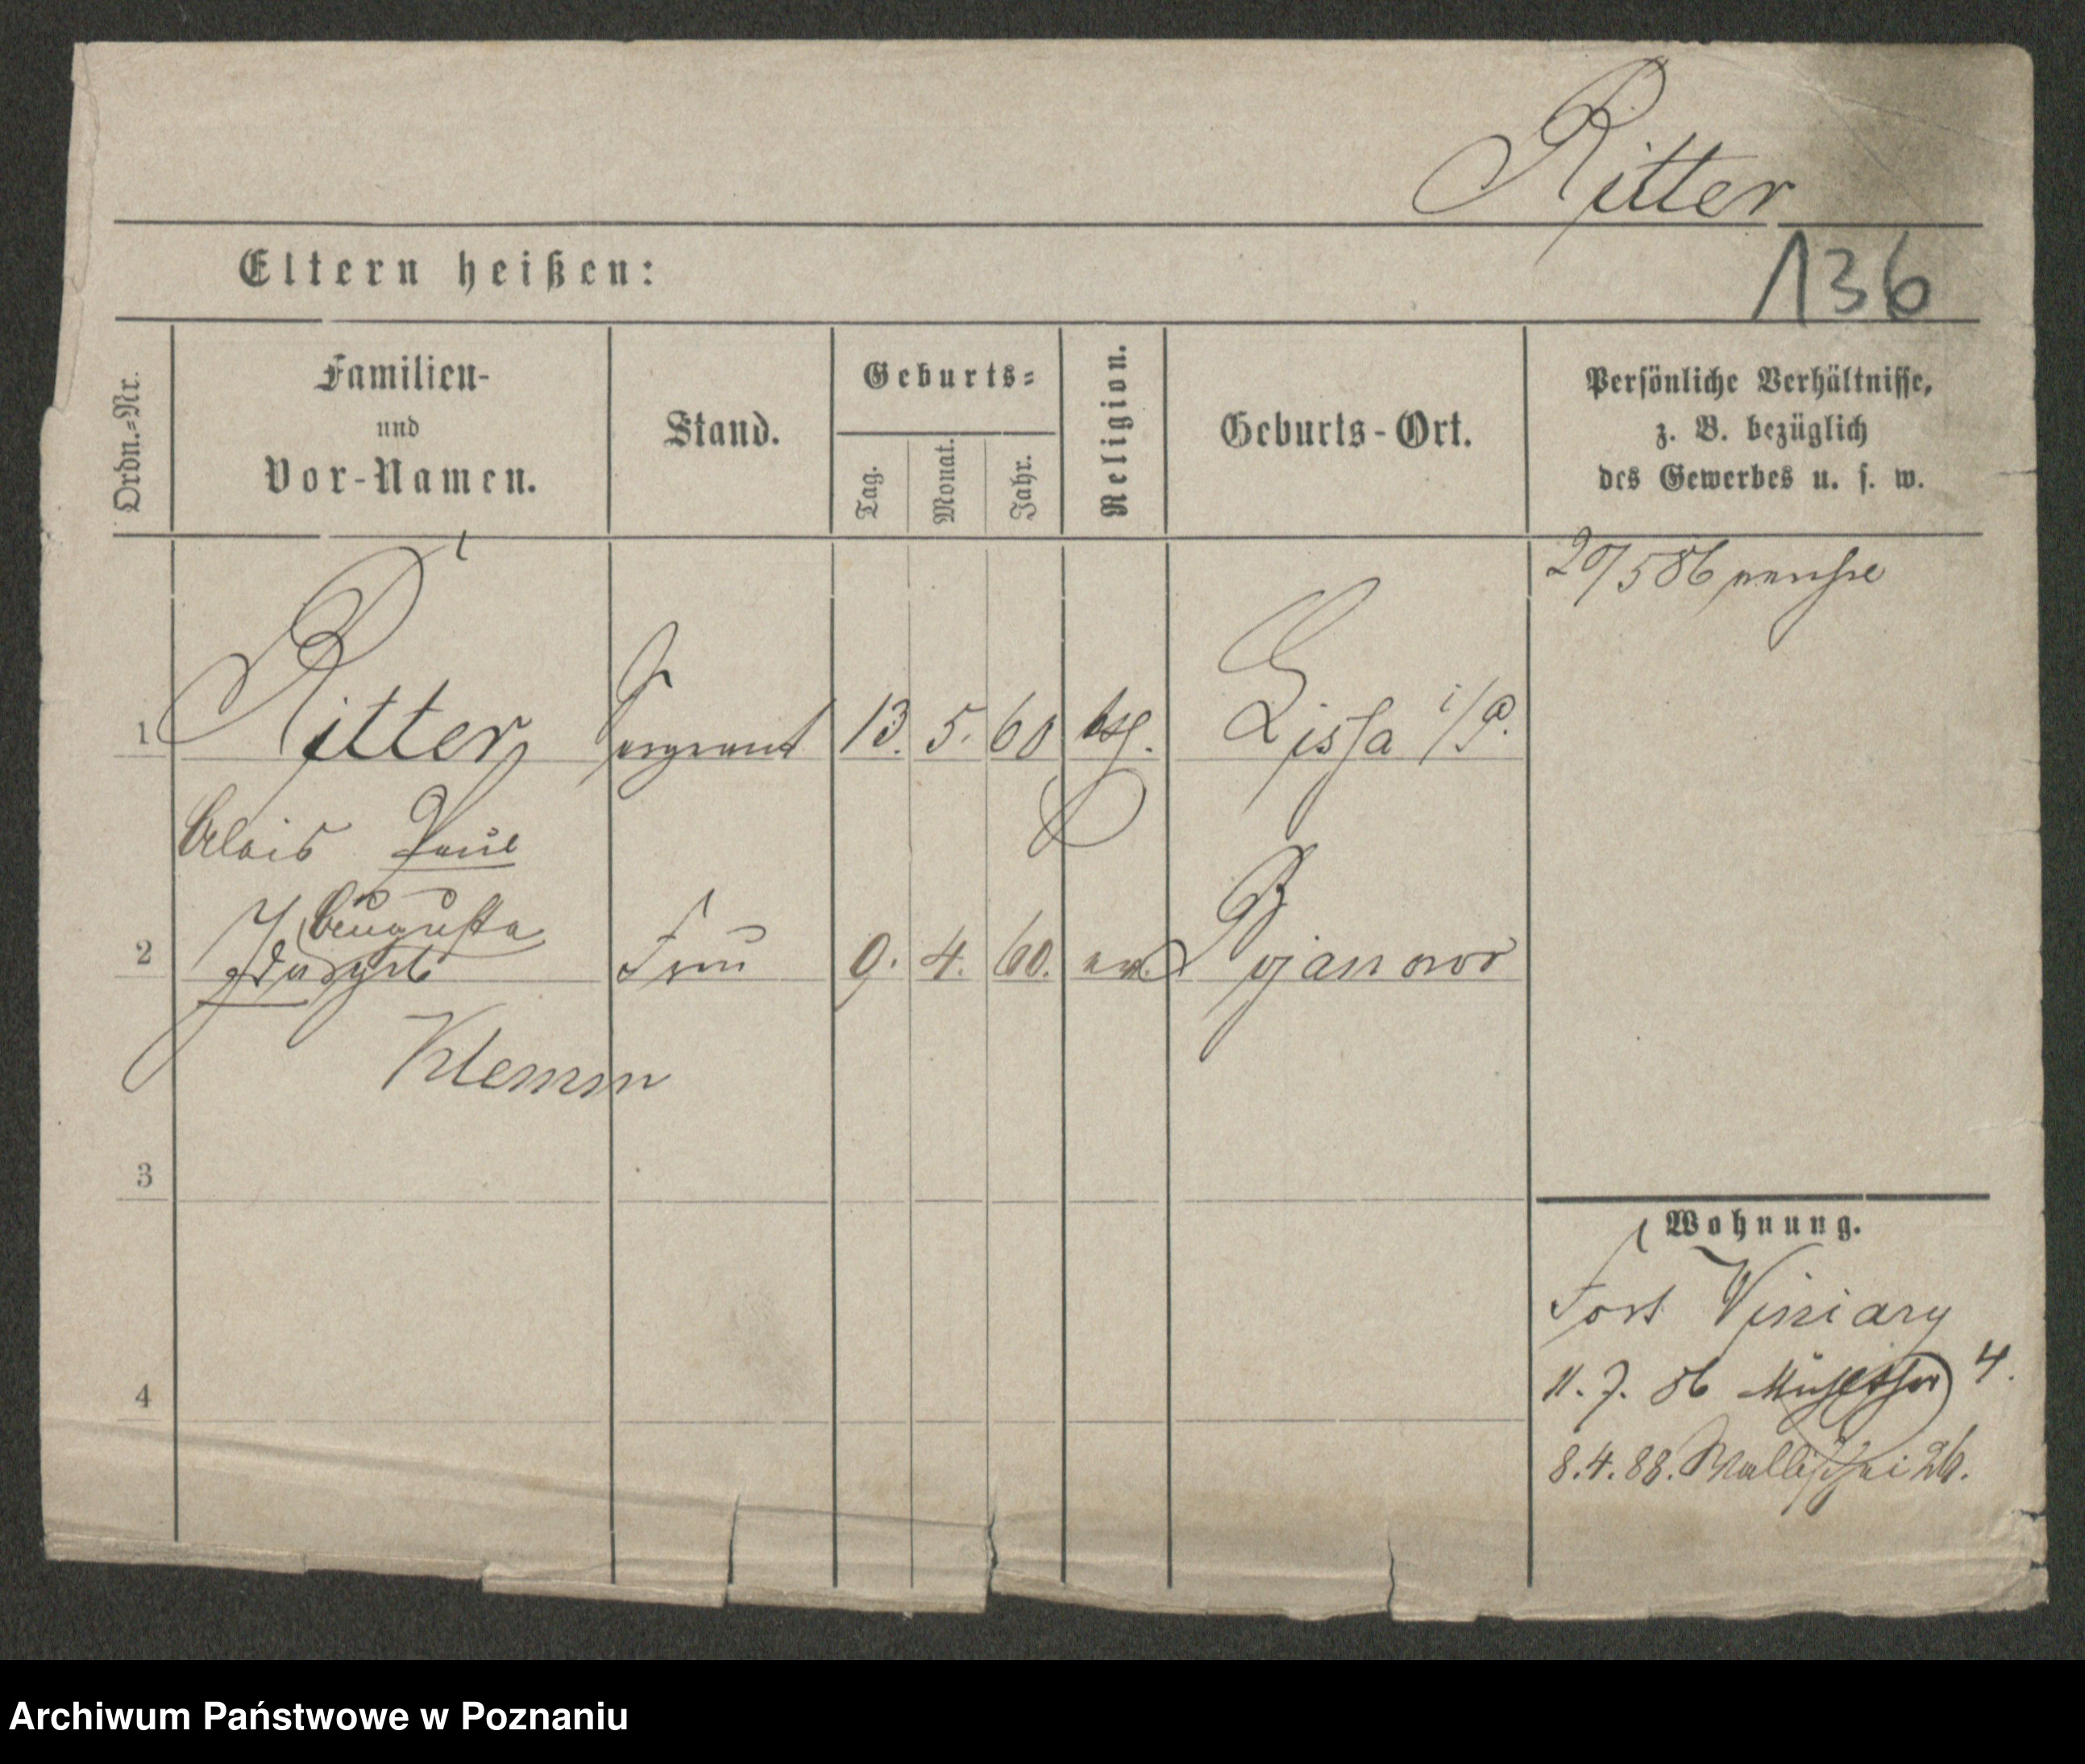 Ritter
136
Eltern heißen:
Ordn.-Nr.
Familien-
und
Vor-Namen.
Stand.
Geburts-
Tag.
Monat.
Jahr.
Religion.
Geburts-Ort.
Persönliche Verhältnisse,
z. B. bezüglich
des Gewerbes u. s. w.
20/5 86
1 Ritter Sergeant 13. 5. 60 Lissa i/P.
Alois Paul
Augusta
2 Ida geb Frau 9. 4. 60. ev. Bojanowo
Klemm
3
4
Wohnung.
Fort Winiary
11. 7. 86 4.
8. 4. 88. Wallischei 26.
Archiwum Państwowe w Poznaniu